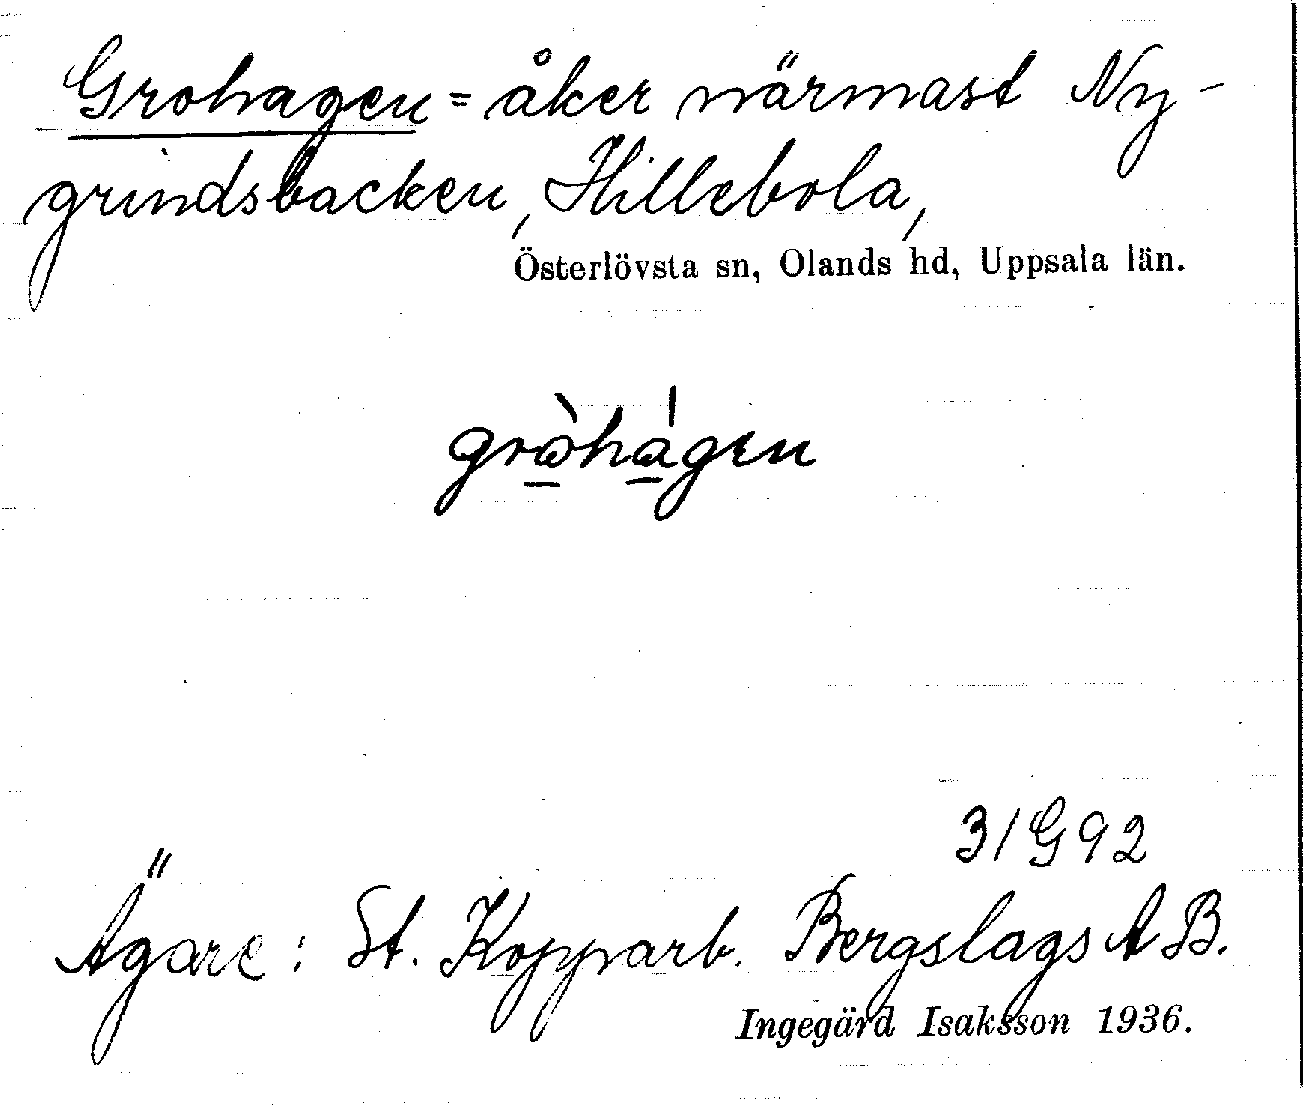 Grohagen = åker närmast Ny-
grindsbacken, Hillebola,
Österlövsta sn, Olands hd, Uppsala län.
grὼ̲há̲gen
31G92
Ägare: St. Kopparb. Bergslags A B.
Ingegärd Isaksson 1936.